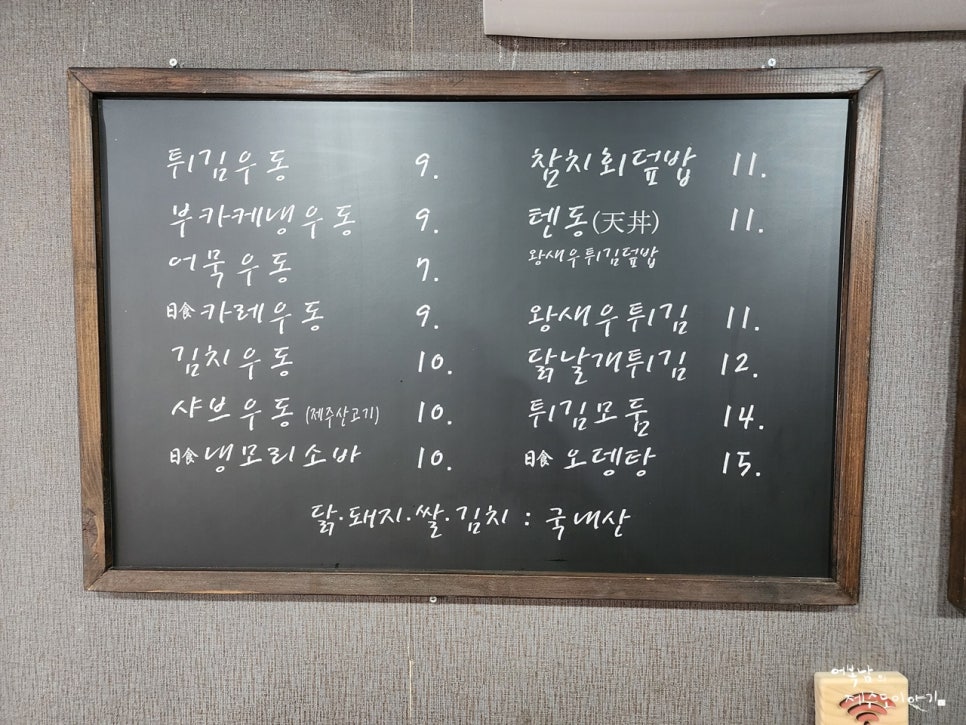 튀김우동 9.
부카케냉우동 9.
어묵우동 7.
日食 카레우동 9.
김치우동 10.
샤브우동 (제주산고기) 10.
日食 냉모리소바 10.
참치회덮밥 11.
텐동(天丼) 11.
왕새우튀김덮밥
왕새우튀김 11.
닭날개튀김 12.
튀김모듬 14.
日食 오뎅탕 15.
닭·돼지·쌀·김치 : 국내산
어복남의
제주도이야기